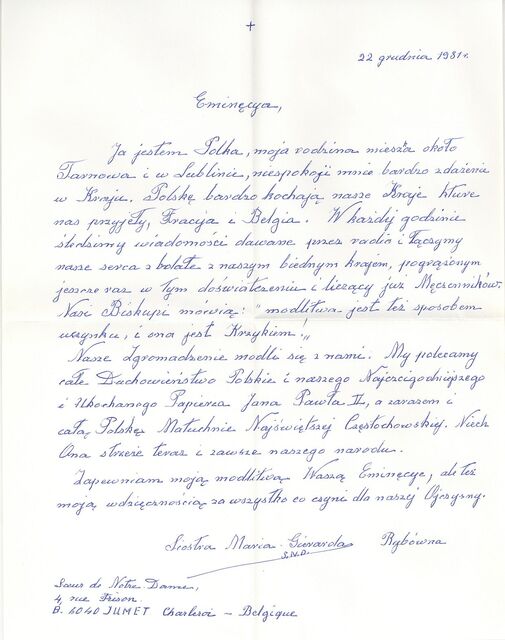 +
22 grudnia 1981r.
Eminęcya,
Ja jestem Polka, moja rodzina miesza około
Tarnowa i w Lublinie, niespokoji mnie bardzo zdażenie
w Kraju. Polskę bardzo kochają nasze Kraje które
nas przyjęły, Fracija i Belgia. W każdij godzinie
śledzimy wiadomości dawane przez radio i łączymy
nasze serca z bolałe z naszym biednym krajem, pogrążonym
jeszcze raz w tym doświatczeniu i liczący już Męczenników.
Nasi Biskupi mówią: "modlitwa jest też sposobem
uczynku, i ona jest Krzykiem!„
Nasze Zgromadzenie modli się z nami. My polecamy
całe Duchowieństwo Polskie i naszego Najczcigodniejszego
i Ukochanego Papieża Jana Pawła II, a zarazom i
całą Polskę Matuchnie Najświętszej Częstochowskij. Niech
Ona strzeże teraz i zawsze naszego narodu.
Zapewniam moją modlitwą Waszą Eminęcye, ale też
moją wdzięcznością za wszystko co czyni dla naszej Ojczyzny.
Siostra Maria Gierarda Rybówna
S.N.D.
Sœurs de Notre Dame,
4, rue Frison.
B. 6040 JUMET Charleroi – Belgique